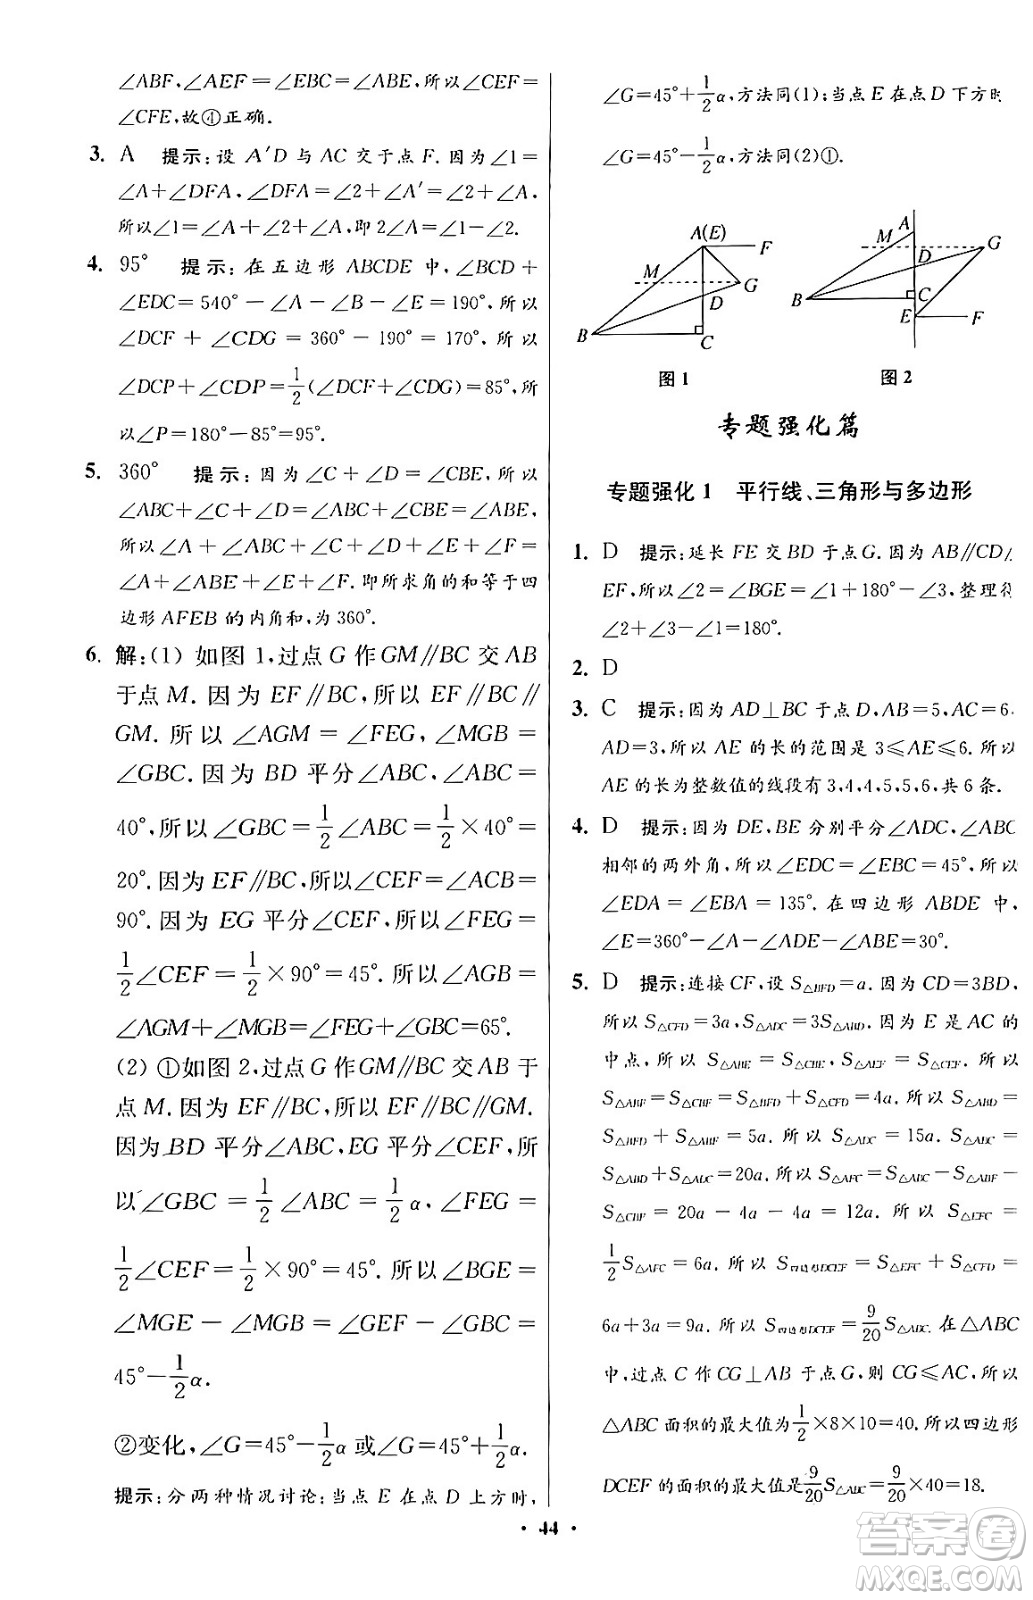 ∠ABF,∠AEF=∠EBC=∠ABE,所以∠CEF=
∠CFE,故④正确.
3. A 提示:设 A′D 与 AC 交于点 F. 因为∠1=
∠A+∠DFA,∠DFA=∠2+∠A′=∠2+∠A,
所以∠1=∠A+∠2+∠A,即 2∠A=∠1-∠2.
4. 95° 提示:在五边形 ABCDE 中,∠BCD+
∠EDC=540°-∠A-∠B-∠E=190°,所以
∠DCF+∠CDG=360°-190°=170°,所以
∠DCP+∠CDP=1/2(∠DCF+∠CDG)=85°,所
以∠P=180°-85°=95°.
5. 360° 提示:因为∠C+∠D=∠CBE,所以
∠A+∠B+∠C+∠D+∠E+∠F=360°,
所以∠A+∠B+∠C+∠D+∠E+∠F=
∠A+∠CBE+∠E+∠F=360°.即所求角的和等于四
边形 AFEB 的内角和,为 360°.
6. 解:(1) 如图 1,过点 G 作 GM∥BC 交 AB
于点 M. 因为 EF∥BC,所以 EF∥BC∥
GM. 所以∠AGM=∠FEG,∠MGB=
∠GBC. 因为 BD 平分∠ABC,∠ABC=
40°,所以∠GBC=1/2∠ABC=1/2×40°=
20°.因为 EF∥BC,所以∠CEF=∠ACB=
90°.因为 EG 平分∠CEF,所以∠FEG=
1/2∠CEF=1/2×90°=45°.所以∠AGB=
∠AGM+∠MGB=∠FEG+∠GBC=65°.
(2) ①如图 2,过点 G 作 GM∥BC 交 AB 于
点 M. 因为 EF∥BC,所以 EF∥BC∥GM.
因为 BD 平分∠ABC,EG 平分∠CEF,所
以∠GBC=1/2∠ABC=1/2α,∠FEG=
1/2∠CEF=1/2×90°=45°.所以∠BGE=
∠MGE-∠MGB=∠GEF-∠GBC=
45°-1/2α.
②变化,∠G=45°-1/2α 或∠G=45°+1/2α.
提示:分两种情况讨论:当点 E 在点 D 上方时,
∠G=45°+1/2α,方法同(1);当点 E 在点 D 下方时
∠G=45°-1/2α,方法同(2)①.
A(E)
F
M
G
D
B
C
图 1
A
M
G
D
B
C
E
F
图 2
专题强化篇
专题强化 1 平行线、三角形与多边形
1. D 提示:延长 FE 交 BD 于点 G. 因为 AB∥CD∥
EF,所以∠2=∠BGE=∠1+180°-∠3,整理得
∠2+∠3-∠1=180°.
2. D
3. C 提示:因为 AD⊥BC 于点 D,AB=5,AC=6,
AD=3,所以 AE 的长的范围是 3≤AE≤6. 所以
AE 的长为整数值的线段有 3,4,4,5,5,6,共 6 条.
4. D 提示:因为 DE,BE 分别平分∠ADC,∠ABC
相邻的两外角,所以∠EDC=∠EBC=45°,所以
∠EDA=∠EBA=135°. 在四边形 ABDE 中,
∠E=360°-∠A-∠ADE-∠ABE=30°.
5. D 提示:连接 CF,设 S△BFD=a. 因为 CD=3BD,
所以 S△CFD=3a,S△ADC=3S△ABD. 因为 E 是 AC 的
中点,所以 S△ABE=S△CBE,S△AFE=S△CEF. 所以
S△ABF=S△CBF=S△BFD+S△CFD=4a. 所以 S△ABD=
S△BFD+S△ABF=5a. 所以 S△ADC=15a. 所以 S△ABC=
S△ABD+S△ADC=20a. 所以 S△AFC=S△ABC-S△ABF-
S△CBF=20a-4a-4a=12a. 所以 S△EFC=
1/2S△AFC=6a. 所以 S四边形DCEF=S△EFC+S△CFD=
6a+3a=9a. 所以 S四边形DCEF=9/20S△ABC. 在△ABC
中,过点 C 作 CG⊥AB 于点 G,则 CG≤AC,所以
△ABC 面积的最大值为1/2×8×10=40. 所以四边形
DCEF 的面积的最大值为9/20S△ABC=9/20×40=18.
· 44 ·
答案圈
MXQE.COM